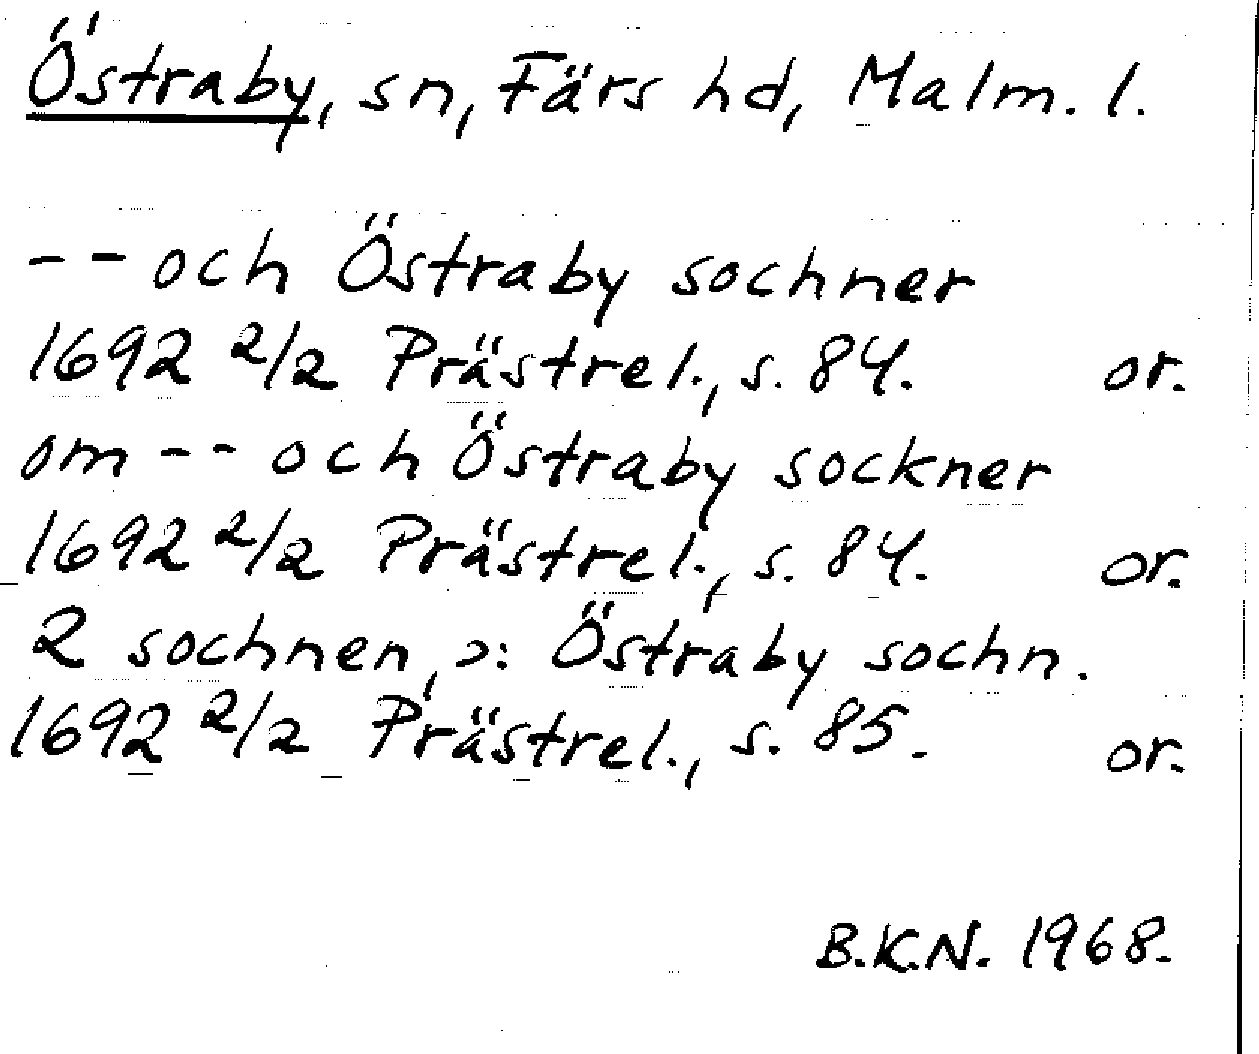 Östraby, sn, Färs hd, Malm. l.
-- och Östraby sochner
1692 2/2 Prästrel., s. 84. or.
om -- och Östraby sockner
1692 2/2 Prästrel., s. 84. or.
2 sochnen, ɔ: Östraby sochn.
1692 2/2 Prästrel., s. 85. or.
B.K.N. 1968.